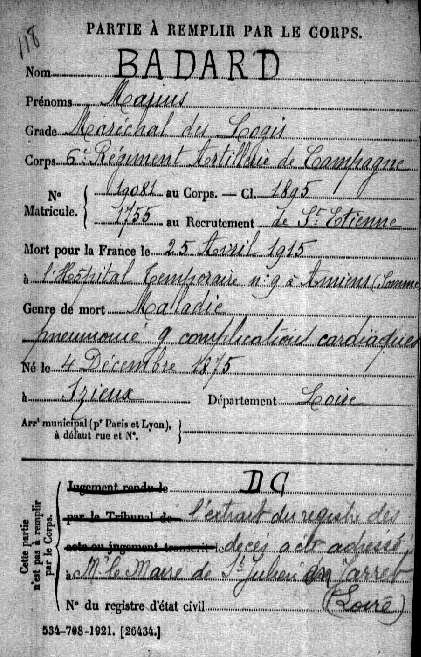 118
PARTIE À REMPLIR PAR LE CORPS.
Nom BADARD
Prénoms Marius
Grade Maréchal des Logis
Corps 6e Régiment Artillerie de Campagne
N° Matricule. { 19081 au Corps. — Cl. 1895
1755 au Recrutement de St Etienne
Mort pour la France le 25 Avril 1915
à l'Hôpital Temporaire n° 9 à Amiens (Somme
Genre de mort Maladie
pneumonie complications cardiaques
Né le 4 Décembre 1875
à Izieux Département Loire
Arrt municipal (pr Paris et Lyon), à défaut rue et N°. }
Cette partie n'est pas à remplir par le Corps.
Jugement rendu le DC
par le Tribunal de l'extrait du registre des
acte ou jugement transcrit le décès a été adressé
à Mr le Maire de St Julien en Jarret
(Loire)
N° du registre d'état civil
534-708-1921. [26434.]